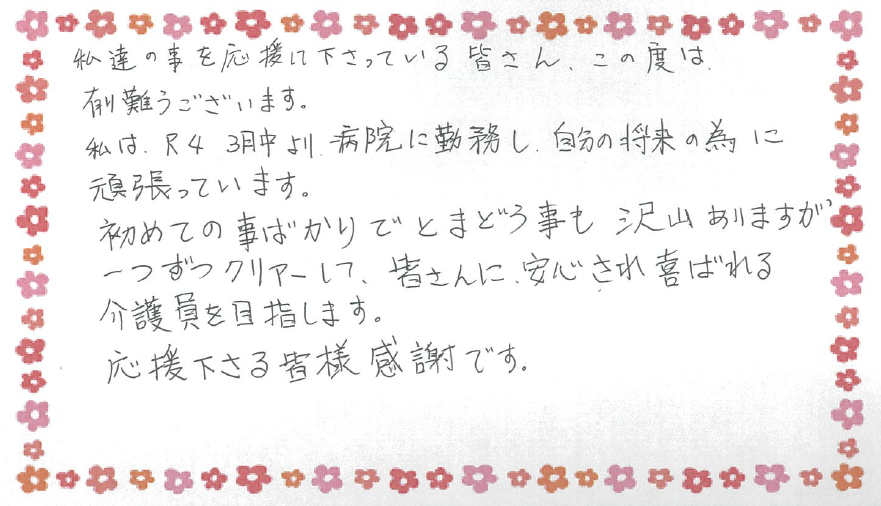 私達の事を応援に下さっている皆さん、この度は、
有難うございます。
私は、R4 3月中より、病院に勤務し、自分の将来の為に
頑張っています。
初めての事ばかりでとまどう事も沢山ありますが、
一つずつクリアーして、皆さんに、安心され喜ばれる
介護員を目指します。
応援下さる皆様感謝です。